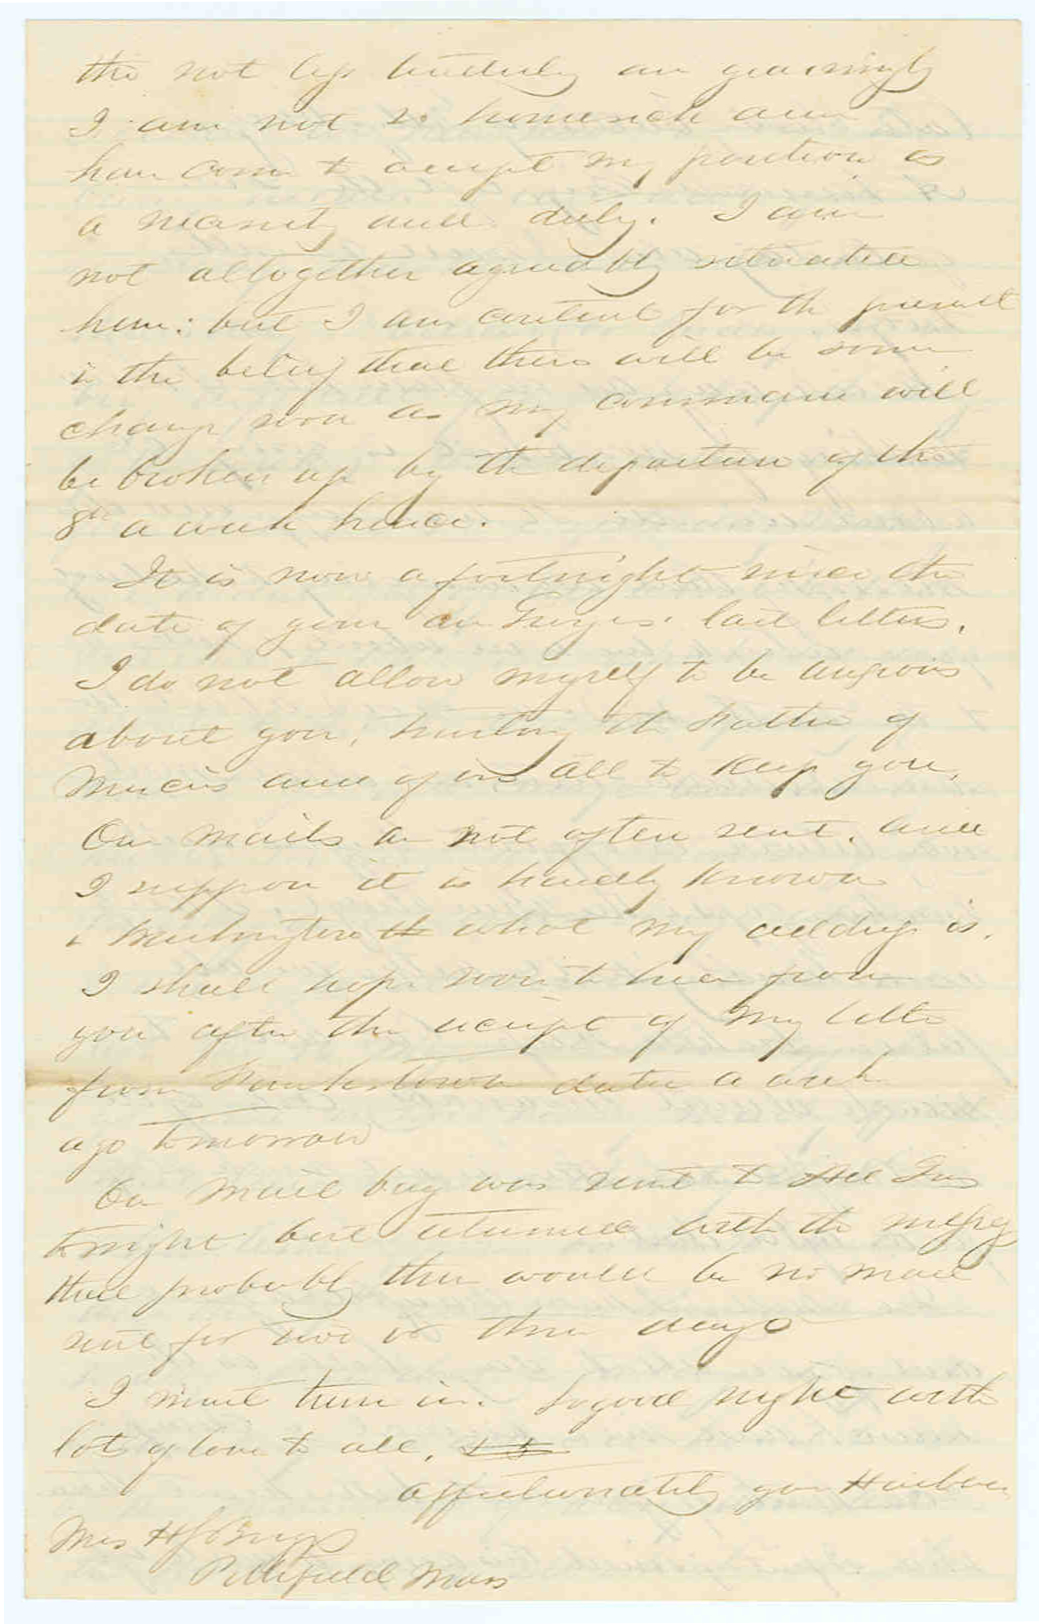 tho not less tenderly and yearningly
I am not so homesick and
have come to accept my position as
a necessity and duty. I am
not altogether agreeably situated
here: but I am content for the present
in the belief that there will be some
change soon as my command will
be broken up by the departure of the
8th a week hence.
It is now a fortnight since the
date of your and last letters.
I do not allow myself to be anxious
about you, trusting the Father of
Mercies and of us all to keep you.
Our mails are not often sent. and
I suppose it is hardly known
in Washington th what my address is.
I shall hope soon to hear from
you after the receipt of my letter
from Funkstown dated a week
ago tomorrow
Our mail bag was sent to Hd Qrs
tonight but returned with the message
that probably there would be no mail
sent for two or three days
I must turn in. So good night with
lots of love to all.
affectionately your Husband
Mrs H S Briggs
Pittsfield Mass